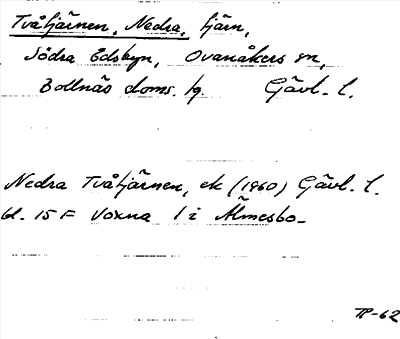 Tvåtjärnen, Nedra, tjärn,
Södra Edsbyn, Ovanåkers sn,
Bollnäs doms. lg. Gävl. l.
Nedra Tvåtjärnen, ek (1960) Gävl. l.
bl. 15 F Voxna l i Älmesbo-
TP-62